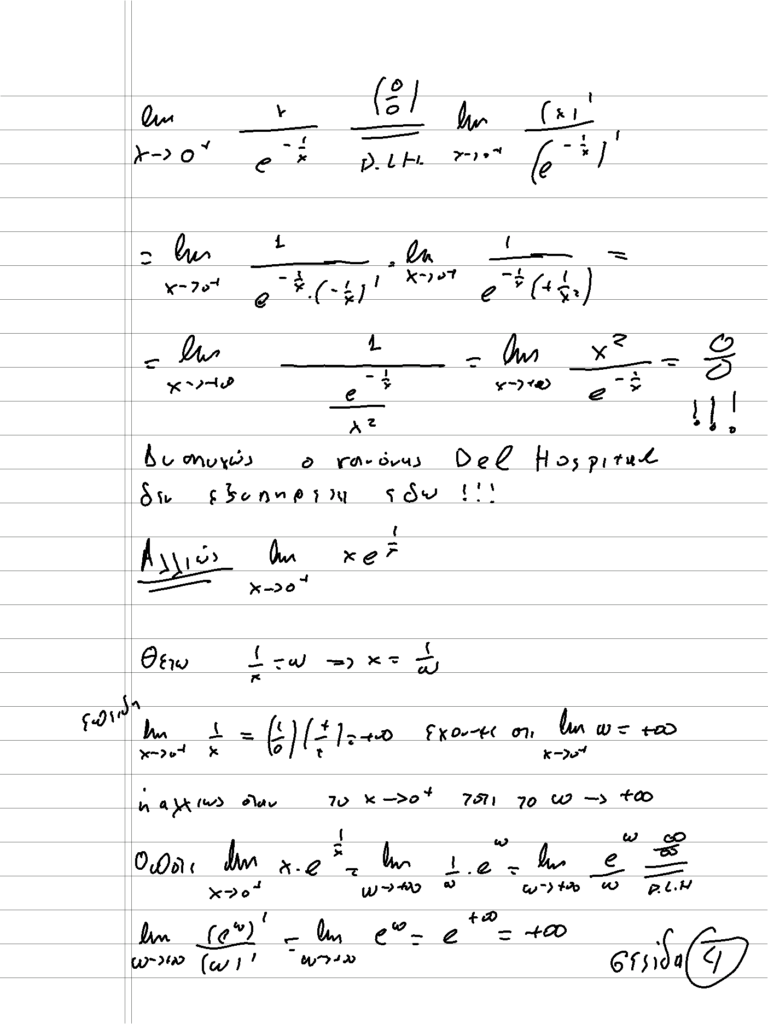 lim x→0⁺ x / e^(-1/x) = (0/0) D.L.H. lim x→0⁺ (x)' / (e^(-1/x))'
= lim x→0⁺ 1 / (e^(-1/x)·(-1/x)') = lim x→0⁺ 1 / (e^(-1/x)(+1/x²)) =
= lim x→+∞ 1 / (e^(-1/x) / x²) = lim x→+∞ x² / e^(-1/x) = 0/0 !!!
Δυστυχώς ο κανόνας Del Hospital
δεν εξυπηρετεί εδώ !!!
Αλλιώς lim x→0⁺ xe^(1/x)
Θετω 1/x = ω => x = 1/ω
επειδή
lim x→0⁺ 1/x = (1/0)(+/+) = +∞ έχουμε οτι lim x→0⁺ ω = +∞
ή αλλιως οταν το x→0⁺ τοτε το ω → +∞
Οποτε lim x→0⁺ x·e^(1/x) = lim ω→+∞ 1/ω · e^ω = lim ω→+∞ e^ω / ω = ∞/∞ D.L.H
lim ω→+∞ (e^ω)' / (ω)' = lim ω→+∞ e^ω = e^(+∞) = +∞
σελίδα 4